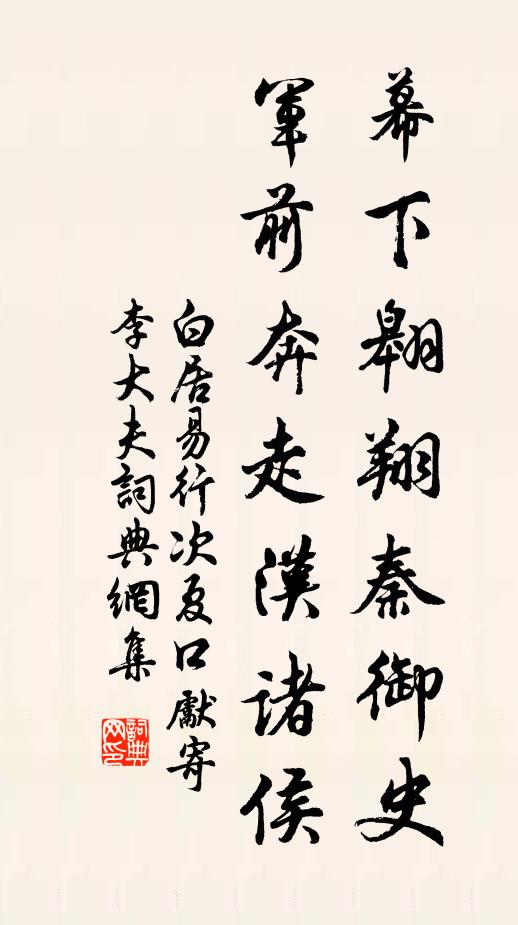 幕下翱翔秦御史
軍前奔走漢諸侯
白居易行次夏口獻寄
李大夫詞典網集
詞典網印